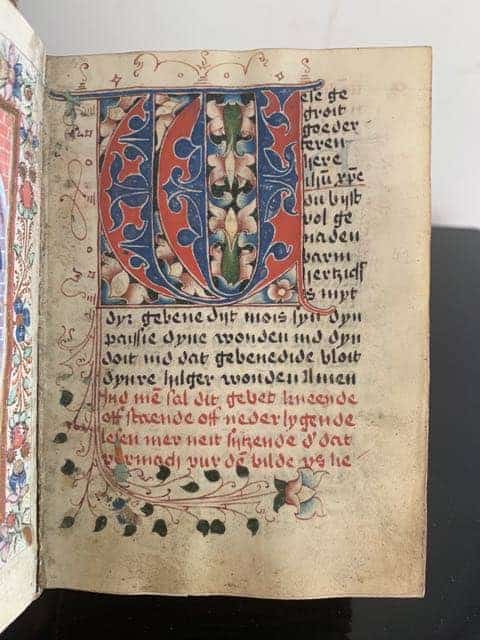 Wese ge
groit
goeder
teren
here
ihū xp̄e
du byst
vol ge
naden
barm
hertzich
s myt
dyr gebenedijt mois syn dyn
passie dyne wonden ind dyn
doit ind dat gebenedide bloit
dynre hilger wonden Amen
Ind mē sal dit gebet kneende
off staende off neder lygende
lesen mer neit sytzende d' dat
vermach vur dē bilde ys he